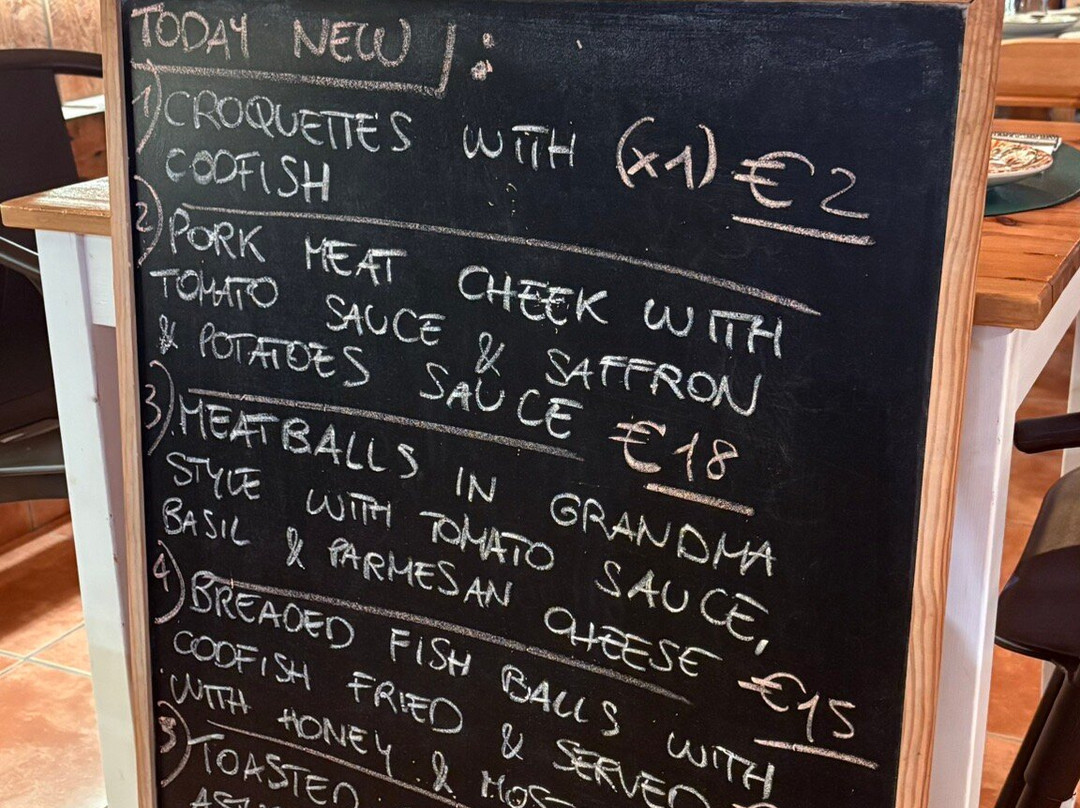 TODAY NEW :
1) CROQUETTES WITH (x1) €2
CODFISH
2) PORK MEAT CHEEK WITH
TOMATO SAUCE & SAFFRON
& POTATOES SAUCE €18
3) MEATBALLS IN GRANDMA
STYLE WITH TOMATO SAUCE,
BASIL & PARMESAN CHEESE €15
4) BREADED FISH BALLS WITH
CODFISH FRIED & SERVED
WITH HONEY &
5) TOASTED